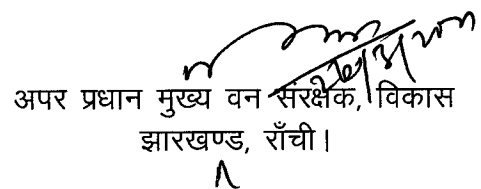 अपर प्रधान मुख्य वन संरक्षक, विकास
झारखण्ड, राँची।